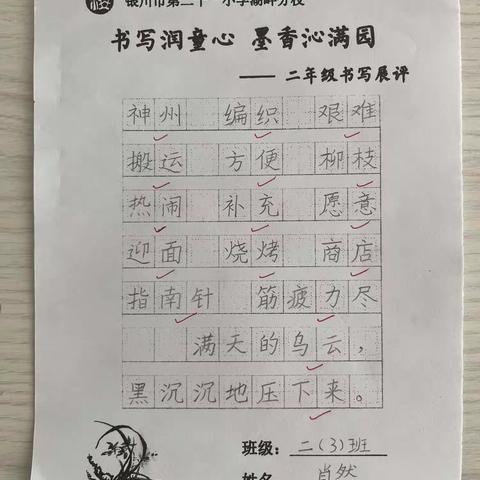 银川市第二十一小学湖畔分校
书写润童心 墨香沁满园
—— 二年级书写展评
神州 编织 艰难
搬运 方便 柳枝
热闹 补充 愿意
迎面 烧烤 商店
指南针 筋疲力尽
满天的乌云，
黑沉沉地压下来。
班级：二（3）班
姓名 肖然